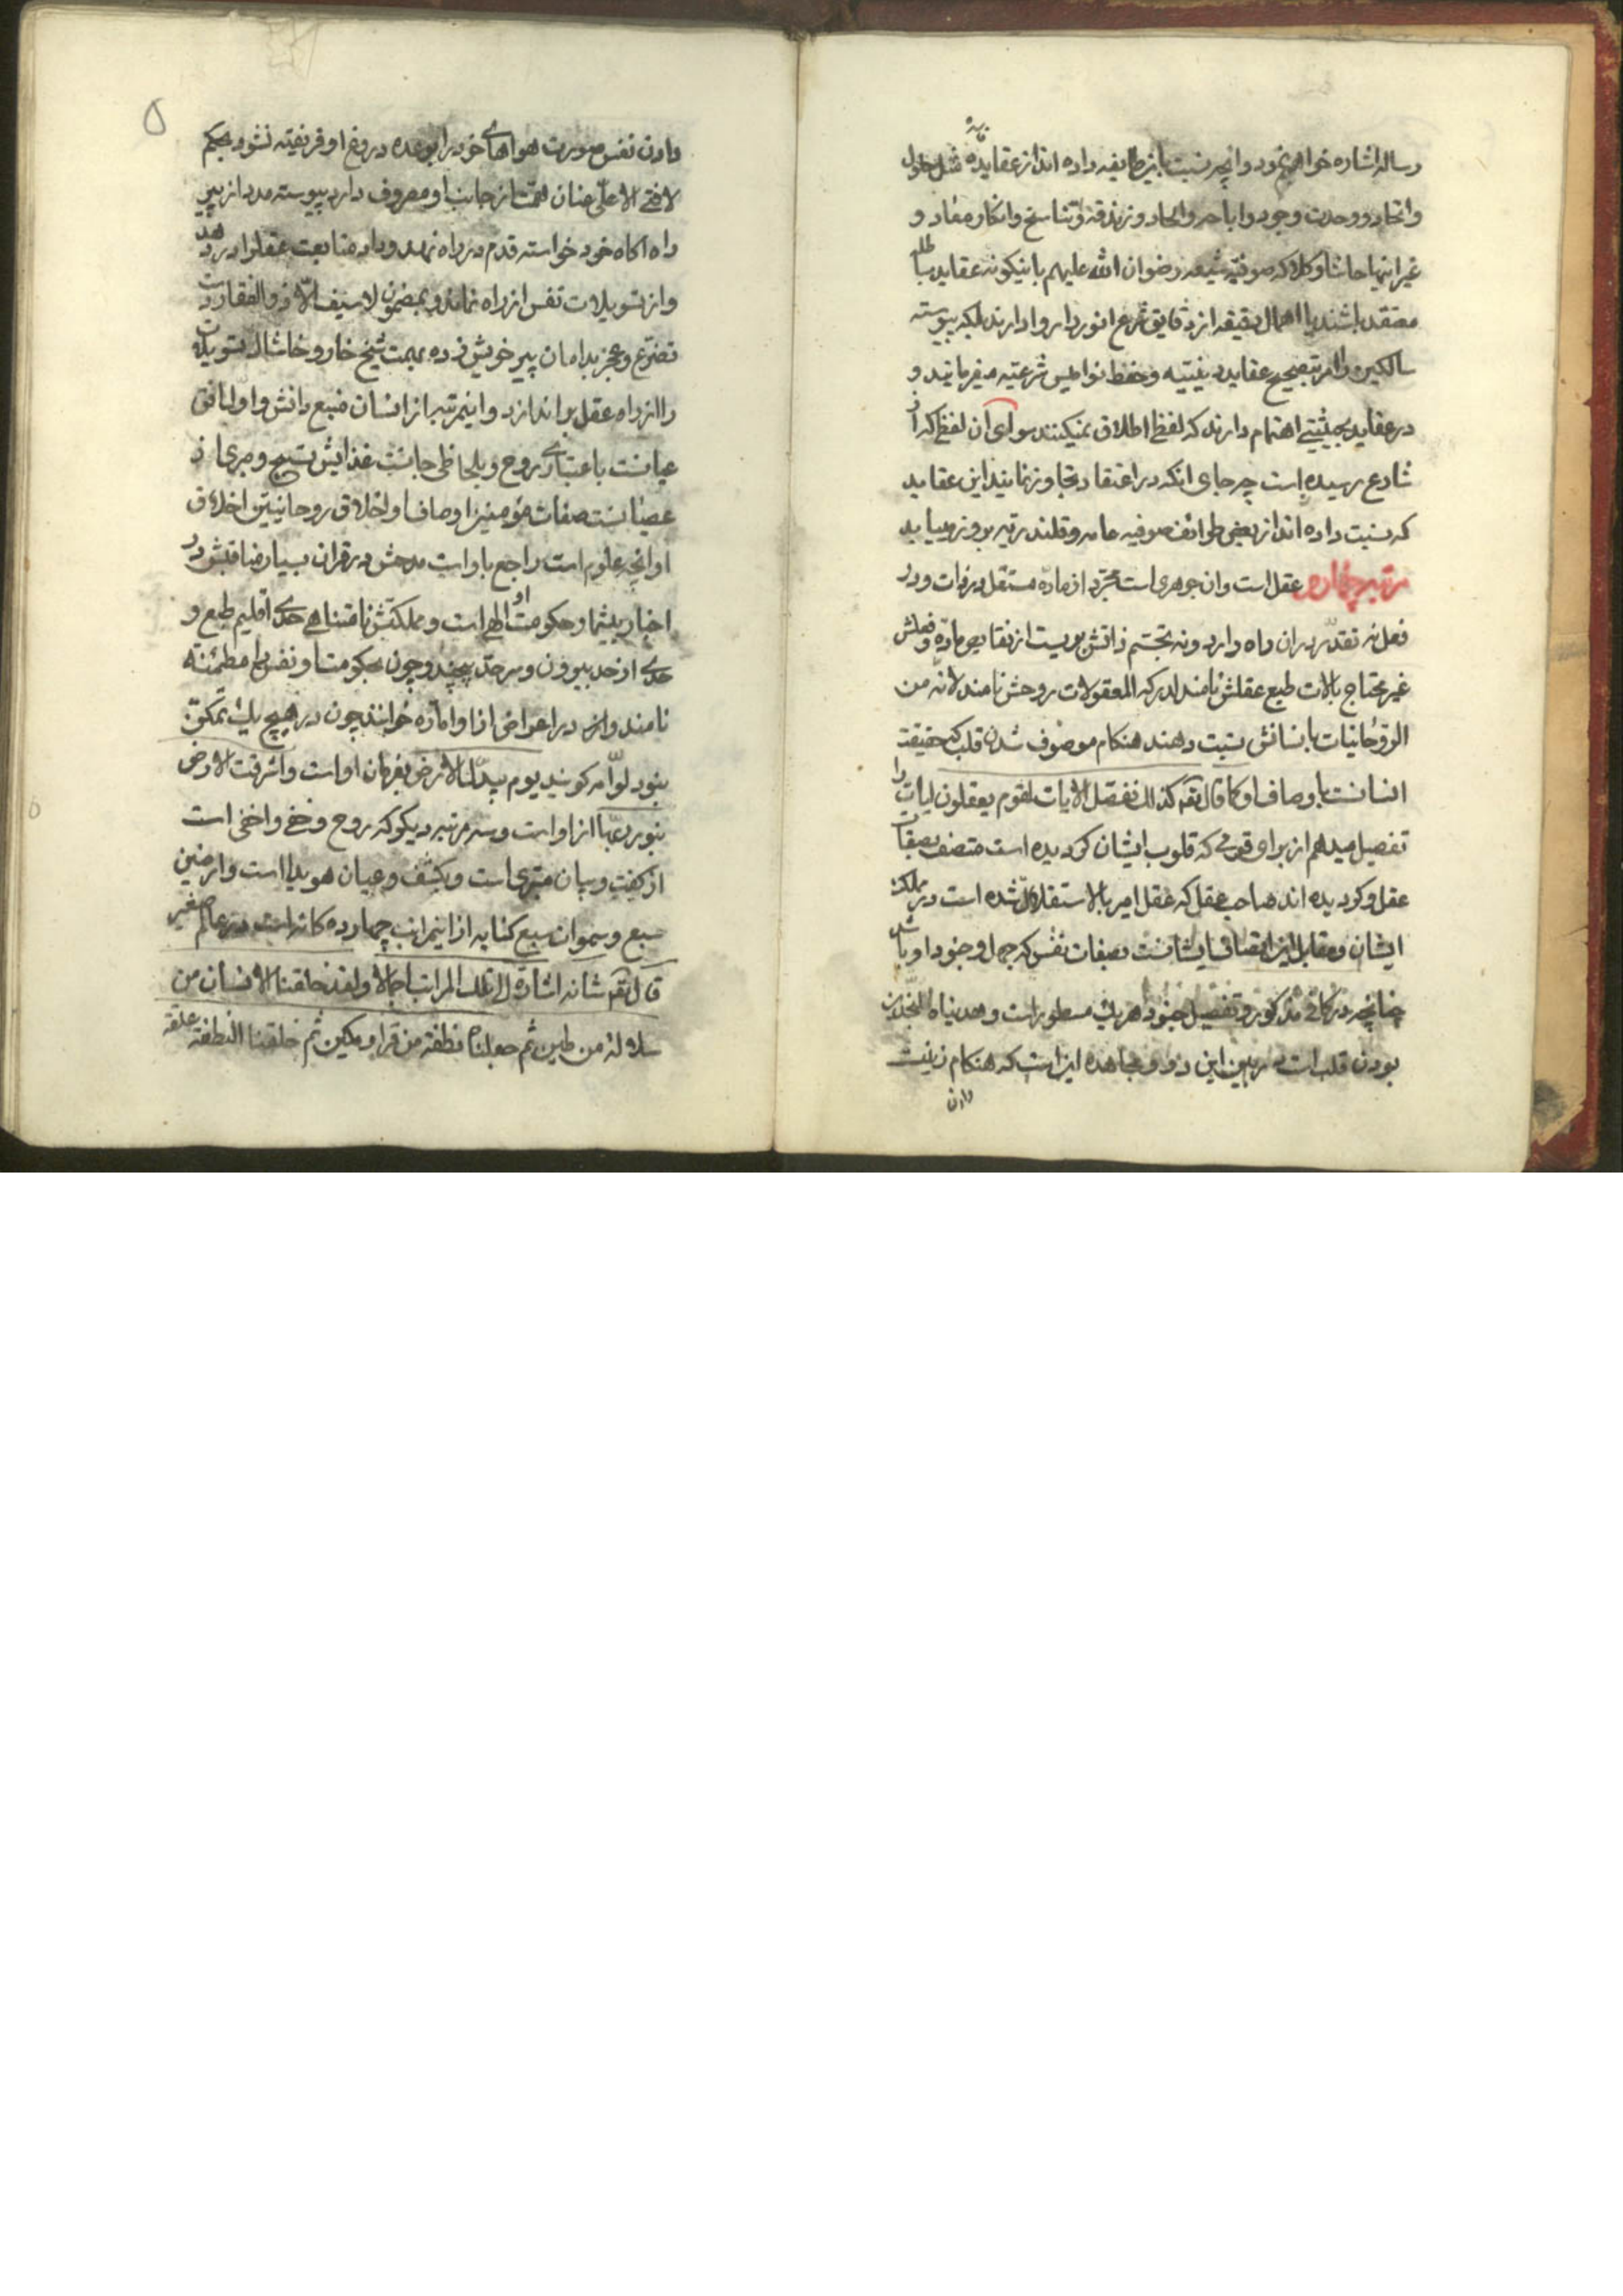 رساله اشاره خواهم نمود وانچه نسبت باین طایفه داده اند از عقاید مثل حلول
واتحاد ووحدت وجود واباحه والحاد وزندقه وتناسخ وانکار معاد و
غیر اینها حاشا وکلا که صوفیه شیعه رضوان الله علیهم باینکونه عقاید باطله
معتقد باشند یا اهمال دقیقه از دقایق شرع انور را روا دارند بلکه پیوسته
سالکین را امر بتصحیح عقاید دینیه وحفظ نوامیس شرعیه میفرمایند و
در عقاید بحیثیتی اهتمام دارند که لفظ اطلاق نمیکنند سوای ان لفظ که از
شارع رسیده است چه جای انکه در اعتقاد تجاوز نمایند این عقاید
که نسبت داده اند از بعضی طوائف صوفیه عامه وقلندریه بروز میابد
مرتبه چهارم عقل است وان جوهری است مجرد از ماده مستقل در ذات ودر
فعل نه تقدر در ان راه دارد ونه تجسم ذاتش بریست از نقایص ماده وفعلش
غیر محتاج بالات طبع عقلش نامند لدرکه المعقولات روحش نامند لانه من
الروحانیات بانسانش نسبت دهند هنکام موصوف شدن قلب که حقیقة
انسانست باوصاف او کما قال تعم کذلک نفصل الایات لقوم یعقلون ایات را
تفصیل میدهم از برای قومی که قلوب ایشان کردیده است متصف بصفات
عقل وکردیده اند صاحب عقل که عقل امیر بالاستقلال شده است در مملکت
ایشان ومقابل این اتصاف ایشانست بصفات نفس که جهل وجنود او باشد
چنانچه در کافی مذکور وتفصیل جنود هریک مسطور است وهدیناه النجدین
بودن قلب است در بین این دو ومجاهده این است که هنکام زینت
دادن
۵
دادن نفس صورت هواهای خود را بوعده دروغ او فریفته نشود بحکم
لافتی الا علی عنان همت از جانب او مصروف دارد پیوسته مدد از پیر
راه اکاه خود خواسته قدم در راه نهد وداد متابعت عقل را در دهد
واز تسویلات نفس از راه نماند وبمضمون لاسیف الا ذوالفقار دست
تضرع وعجز بدامان پیر خویش زده بهمت شیخ خار وخاشاک تسویلات
را از راه عقل بر اندازد واینمرتبه از انسان منبع دانش و
عیانست باعتباری روح وبلحاظی جانست غذایش تسبیح ومبری از
عصیانست صفات مؤمنین اوصاف او اخلاق روحانیین اخلاق
او انچه علوم است راجع باو است مدحش در قران بسیار مناقبش در
اخبار بیشمار حکومت او الهی است ومملکتش نامتناهی حدی اقلیم طبع و
حدی از حد بیرون وسرحد بیچند وچون بحکومت او نفس را مطمئنه
نامند واز در اعراض از او اماره خوانند چون در هیچ یک تمکن
نبود لوامه کویند یوم تبدل الارض بفرمان او است واشرقت الارض
بنور ربها از او است وسه مرتبه دیکر که روح وخفی واخفی است
از کفت وبیان مبری است وبکشف وعیان هویدا است وارضین
سبع وسموات سبع کنایه از اینمراتب چهارده کانه است در عالم صغیر
قال تعم شانه اشارة الی تلک المراتب اجمالا ولقد خلقنا الانسان من
سلالة من طین ثم جعلناه نطفة من قرار مکین ثم خلقنا النطفة علقة